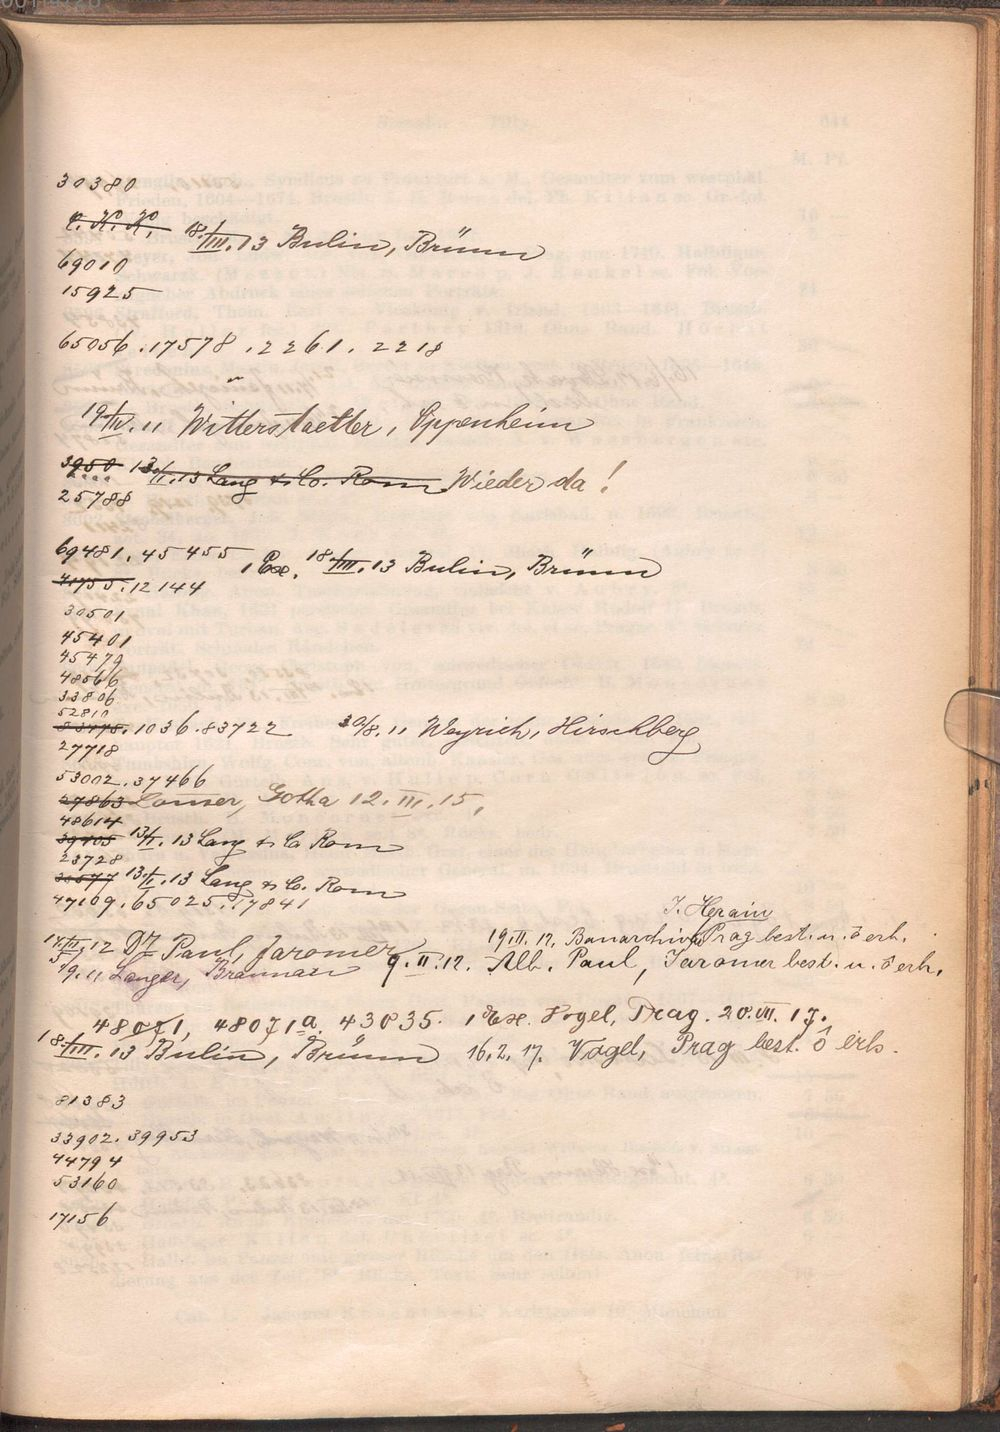 30380
K. K. 18/III. 13 Bulin, Brünn
69010
15925
65056. 17578. 2261. 2218
19/IV. 11 Witterstaetter, Oppenheim
3950 13/I. 13 Lang & Co. Rom Wieder da!
25788
69481. 45455
1 Ex. 18/III. 13 Bulin, Brünn
12144
30501
45401
45479
48566
33806
52810
1036. 83722 30/8. 11 Weyrich, Hirschberg
27718
53002. 37466
27863 Gotha 12. III. 15,
48614
39405 13/I. 13 Lang & Co Rom
23728
13/I. 13 Lang & Co. Rom
47109. 65025. 17841
J. Herain
12 Dr Paul, Jaromer 19. II. 12. Prag best. u. ô erh.
9. 11 Langer, Braunau 9. II. 12. Alb. Paul, Jaromer best. u. ô erh.
48071, 48071a. 43035. 1 Ex. Vogel, Prag. 20. VII. 17.
18/III. 13 Bulin, Brünn 16. 2. 17. Vogel, Prag best. ô erh.
81383
33902. 39953
44794
53160
17156